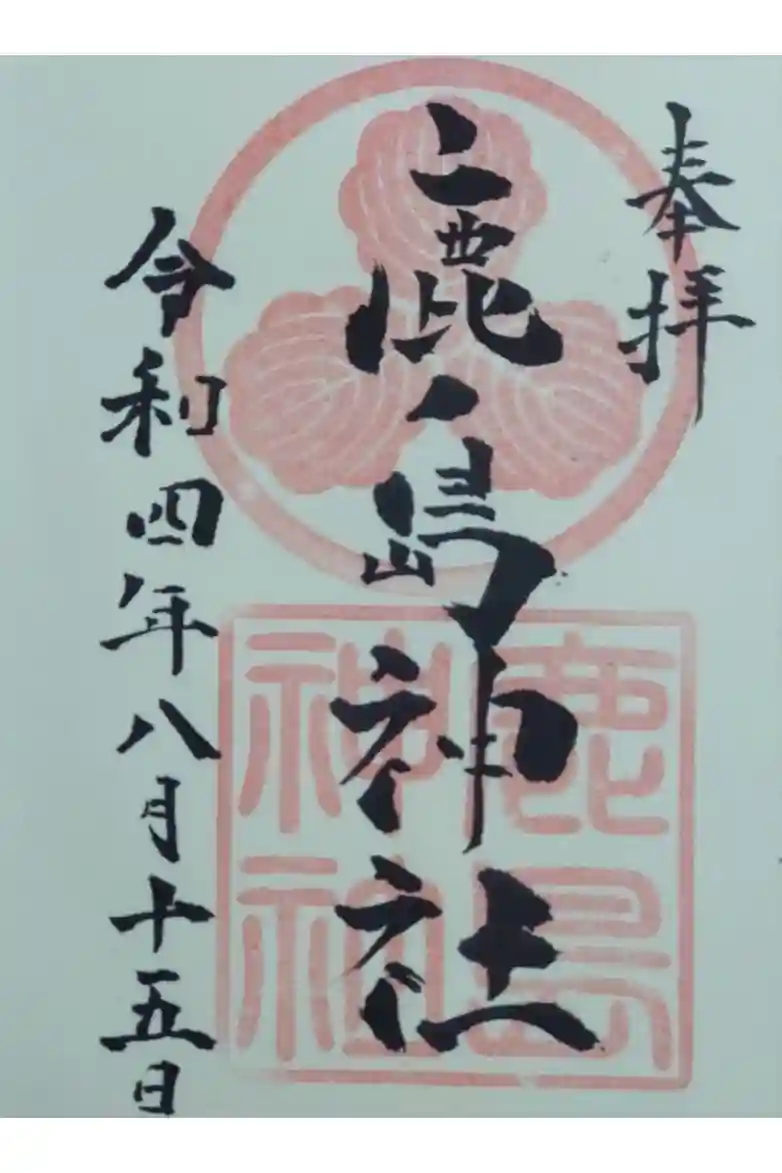 奉拝
鹿ノ島神社
令和四年八月十五日
鹿島
神社